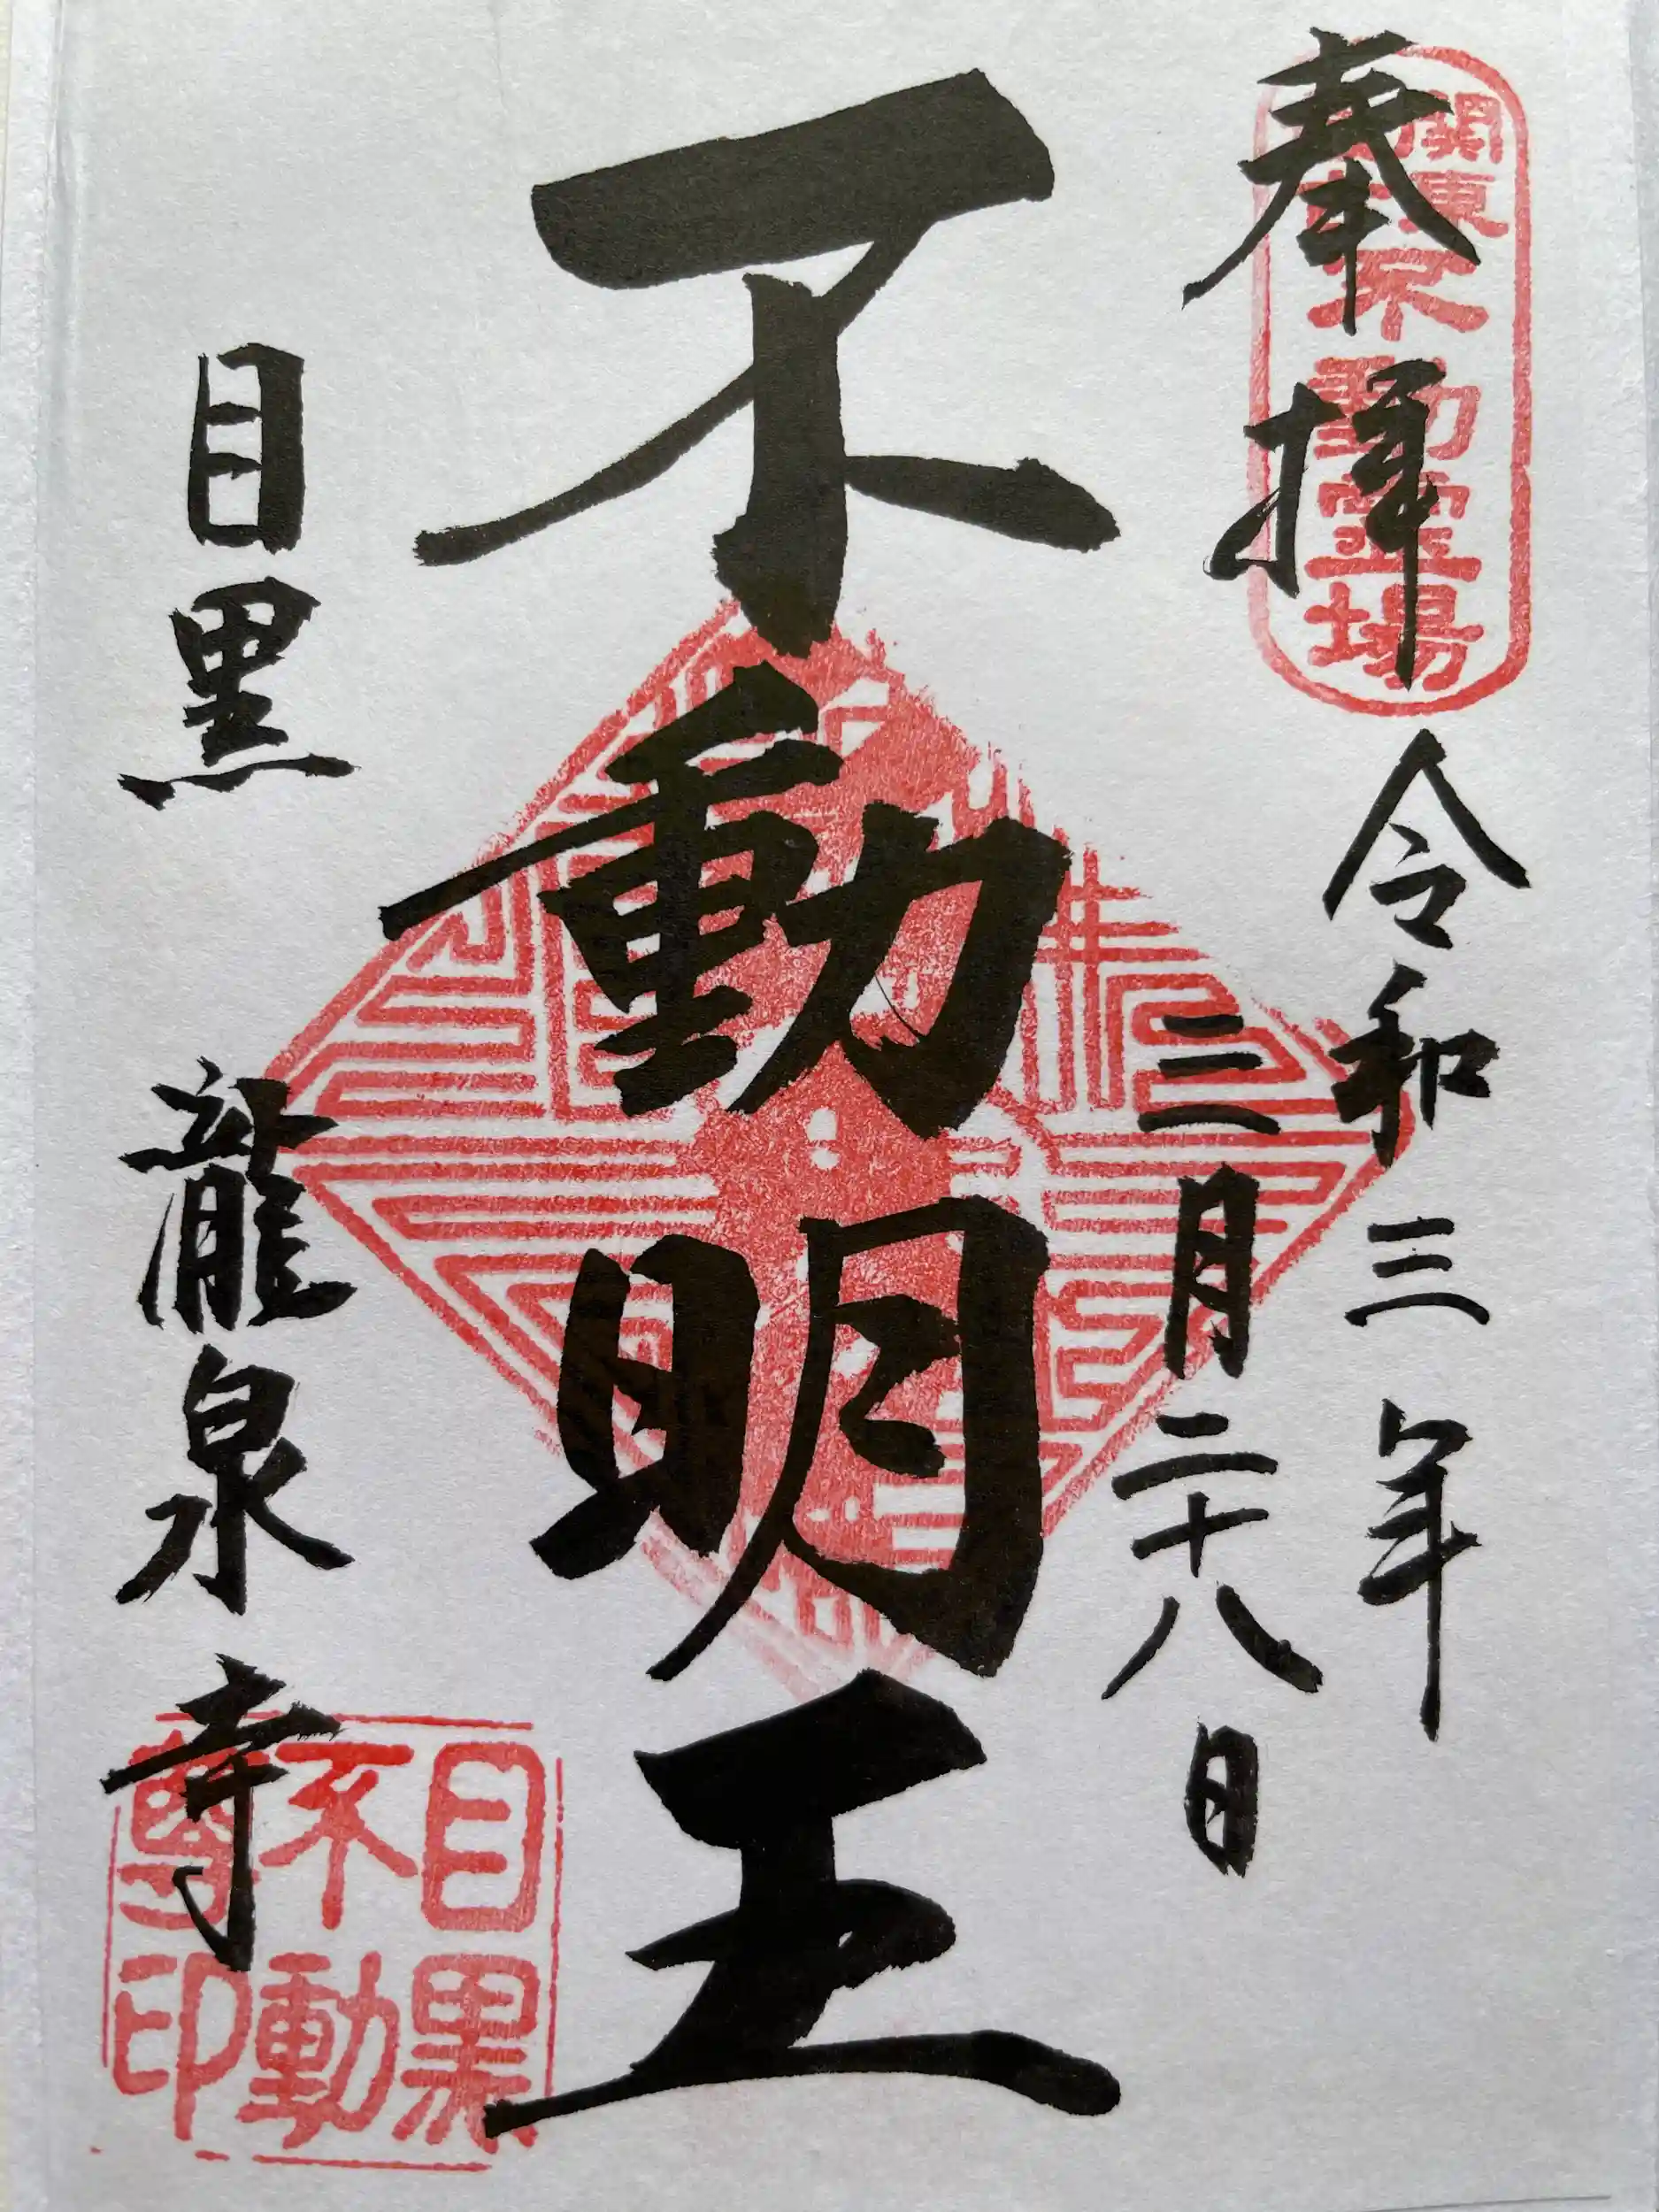 奉拝
関東
不動霊場
令和三年
三月二十八日
不動明王
目黒 龍泉寺
目黒
不動
尊印